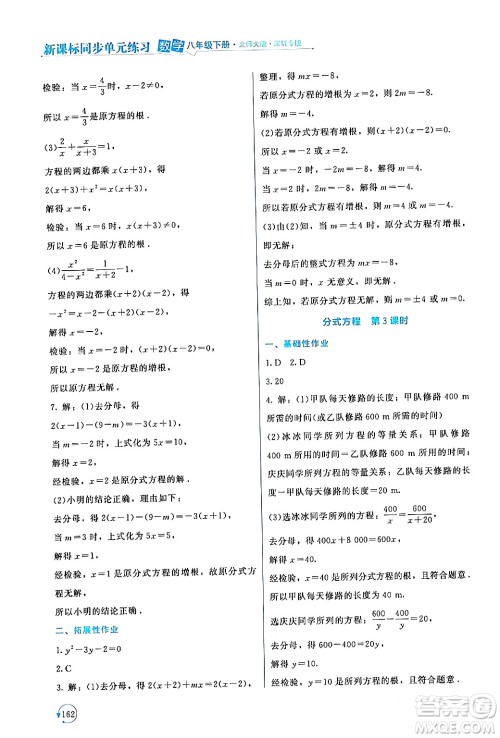 新课标同步单元练习 数学 八年级下册·北师大版·深圳专版
检验：当 x=4/3 时，x(x+2)≠0，
所以 x=4/3 是原方程的根．
(3) 2/x + x/(x+3) =1，
方程的两边都乘 x(x+3)，得
2(x+3)+x²=x(x+3)．
解得 x=6．
检验：当 x=6 时，x(x+3)≠0，
所以 x=6 是原方程的根．
(4) x²/(4-x²) = 1/(x+2) -1，
方程的两边都乘 (x+2)(x-2)，得
-x²=x-2-(x+2)(x-2)．
解得 x=-2．
检验：当 x=-2 时，(x+2)(x-2)=0，
所以原方程无解．
7. 解：(1)去分母，得
2(x-1)-(9-m)=-(x-2)．
当 m=-2 时，上式化为
2(x-1)-11=-(x-2)．
解得 x=5．
经检验，x=5 是原分式方程的解．
(2)小明的结论正确，理由如下：
去分母，得 2(x-1)-(9-m)=-(x-2)．
当 m=5 时，上式化为
2(x-1)-4=-(x-2)．
解得 x=
经检验，x=2 是增根，故原分式方程
无解．
所以小明的结论正确．
二、拓展性作业
1. y²-3y-2=0
2. C
3. 解：(1)去分母，得 2(x+2)+mx=x-2．
整理，得
若原分式方程的增根为 x=2，则 m=-8．
解得 m=-4．
(2)若原分式方程有增根，则 (x+2)(x-2)=0．
所以 x=-2 或 x=2．
当 x=-2 时，-2(m+1)=-8．
解得 m=3．
当 x=2 时，2(m+1)=-8．
解得 m=-4．
所以若原分式方程有增根，则
(3)由(2)知，当 m=3或 m=-4 时，原分式方程有增根，
即无解；
去分母后的整式方程为 (m+1)x=-8，
当 m+1=0 时，x 无意义，即无解．
综上知，若原方程无解，则
分式方程 第 3 课时
一、基础性作业
1. D 2. D
3. 20
4. 解：(1)甲队每天修路的长度 甲队修路 400 m
所需的时间(或乙队修路 600 m 所需的时间)
(2)冰冰同学所列方程的等量关系：甲队修路
400 m 所用时间=乙队修路 600 m 所用时间；
庆庆同学所列方程的等量关系：乙队每天修路的长
度-甲队每天修路的长度=20 m．
(3)选冰冰同学所列的方程：400/x = 600/(x+20)，
去分母，得 400x+8 000=600x．
解得 x=40．
经检验，x=40 是所列方程的解，且符合题意．
所以甲队每天修路的长度为 40 m．
选庆庆同学所列的方程：600/y - 400/y =20，
去分母，得 600-400=20y．
解得 y=10．
经检验，y=10 是所列方程的解，且符合题意．
162